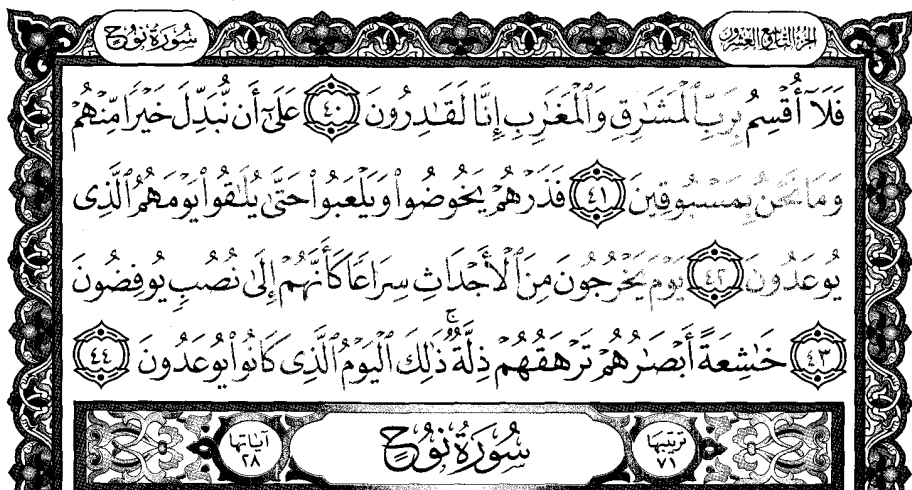 الجزء التاسع والعشرون
سورة نوح
فَلَآ أُقْسِمُ بِرَبِّ ٱلْمَشَٰرِقِ وَٱلْمَغَٰرِبِ إِنَّا لَقَٰدِرُونَ ٤٠ عَلَىٰٓ أَن نُّبَدِّلَ خَيْرًا مِّنْهُمْ
وَمَا نَحْنُ بِمَسْبُوقِينَ ٤١ فَذَرْهُمْ يَخُوضُوا۟ وَيَلْعَبُوا۟ حَتَّىٰ يُلَٰقُوا۟ يَوْمَهُمُ ٱلَّذِى
يُوعَدُونَ ٤٢ يَوْمَ يَخْرُجُونَ مِنَ ٱلْأَجْدَاثِ سِرَاعًا كَأَنَّهُمْ إِلَىٰ نُصُبٍ يُوفِضُونَ
٤٣ خَٰشِعَةً أَبْصَٰرُهُمْ تَرْهَقُهُمْ ذِلَّةٌ ۚ ذَٰلِكَ ٱلْيَوْمُ ٱلَّذِى كَانُوا۟ يُوعَدُونَ ٤٤
ترتيبها ٧١
سُورَةُ نُوحٍ
آياتها ٢٨